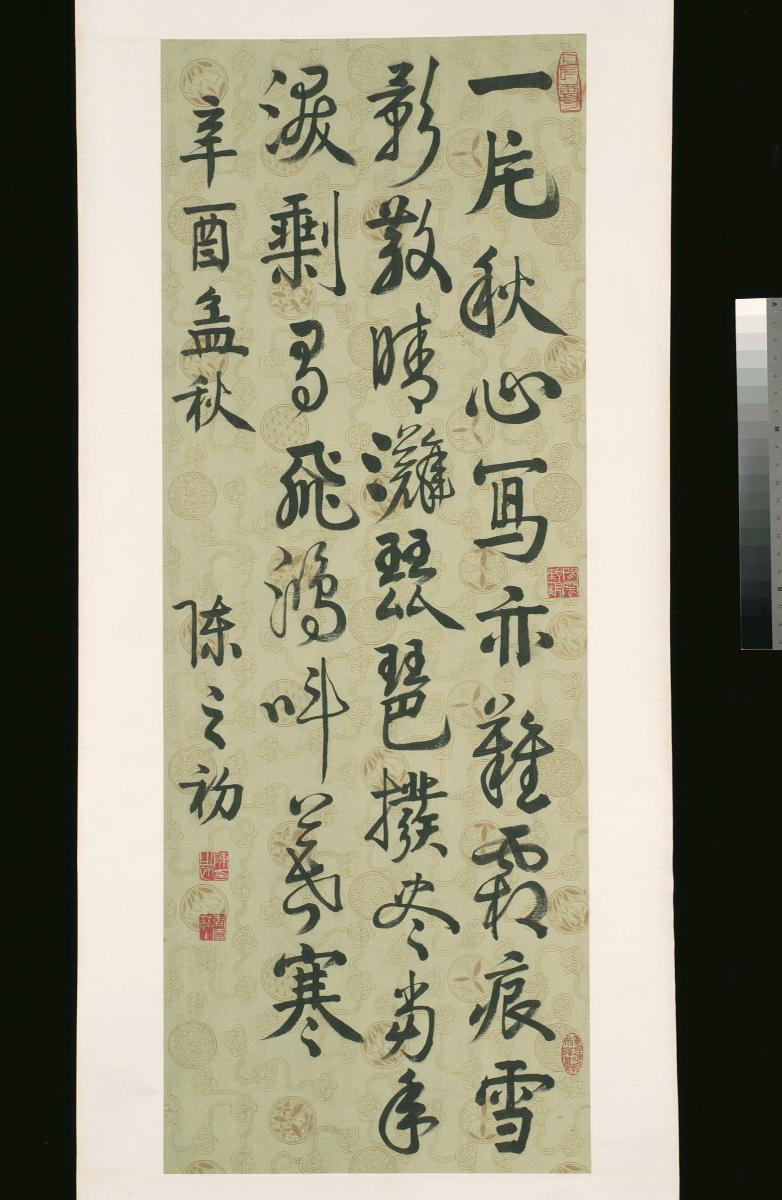 一片秋心寫亦難霜痕雪
影散晴灘琵琶撥尽當年
淚剩飛鴻叫暮寒
辛酉孟秋 陳之初